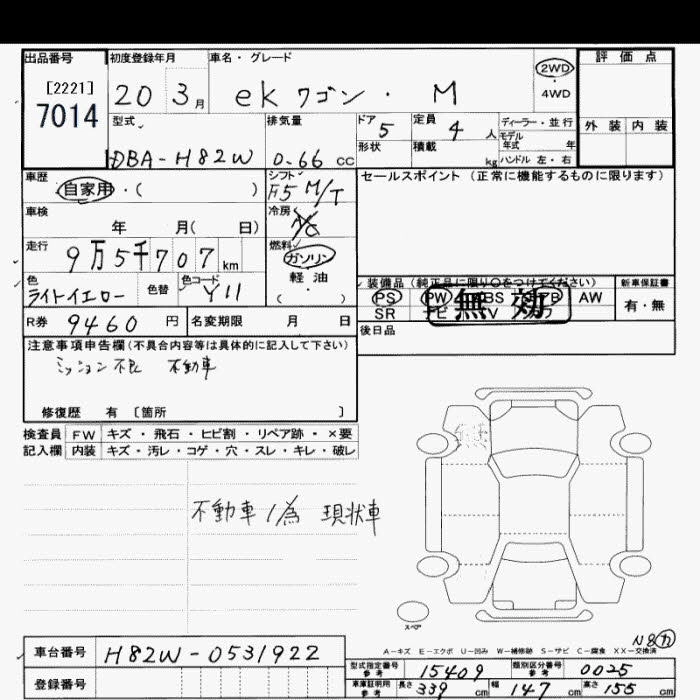 出品番号 初度登録年月 車名・グレード 評価点
[2221]
7014
20 3月 ekワゴン・ M
2WD
・
4WD
型式 排気量 ドア 5 定員 4人 ディーラー・並行 外装 内装
モデル年式 年
DBA-H82W 0.66 CC 形状 積載 kg ハンドル 左・右
車歴 シフト セールスポイント (正常に機能するものに限ります)
自家用・( ) F5 M/T
車検 冷房
年 月( 日) A/C
走行 9万5千707km 燃料 ガソリン
軽油
・
( )
色 色替 色コード 装備品 (純正品に限り○をつけてください) 新車保証書
ライトイエロー Y11 PS PW ABS AW 有・無
無効
SR ナビ TV
R券 9460円 名変期限 月 日 後日品
注意事項申告欄(不具合内容等は具体的に記入して下さい)
ミッション不良 不動車
修復歴 有 〔箇所 〕
検査員 FW キズ・飛石・ヒビ割・リペア跡・×要
記入欄 内装 キズ・汚レ・コゲ・穴・スレ・キレ・破レ
不動車ノ為 現状車
スペア
N8カ
A-キズ E-エクボ U-凹み W-補修跡 S-サビ C-腐食 XX-交換済
車台番号 H82W-0531922
型式指定番号 参考 15409 類別区分番号 参考 0025
登録番号
車庫証明用 参考 長さ 339cm 幅 147cm 高さ 155cm